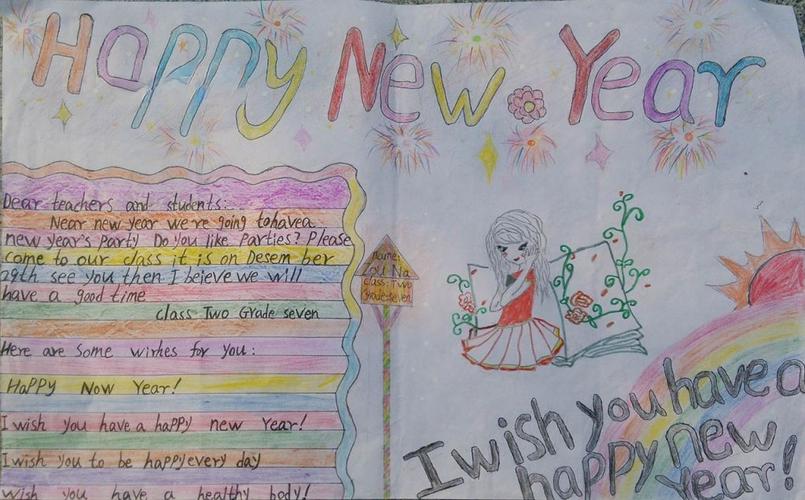 Happy New Year
Dear teachers and students:
Near new year we're going tohavea
new year's party Do you like parties? Please
come to our class it is on Desem ber
29th see you then I beieve we will
have a good time
class Two Grade seven
Here are some wirhes for you:
HaPPy Now Year!
I wish you have a haPPy new Year!
I wish you to be happyevery day
wish you have a healthy body!
name:
Zou Na
class: Two
Grade:seven
I wish you have a
happy new
year!